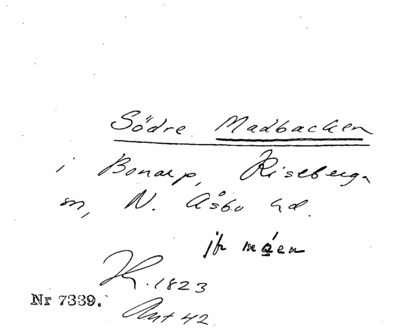 Södre Madbacken
i Bonarp, Riseberga
sn, N. Åsbo hd.
jfr måen
K. 1823
Nr 7339.
Akt 42